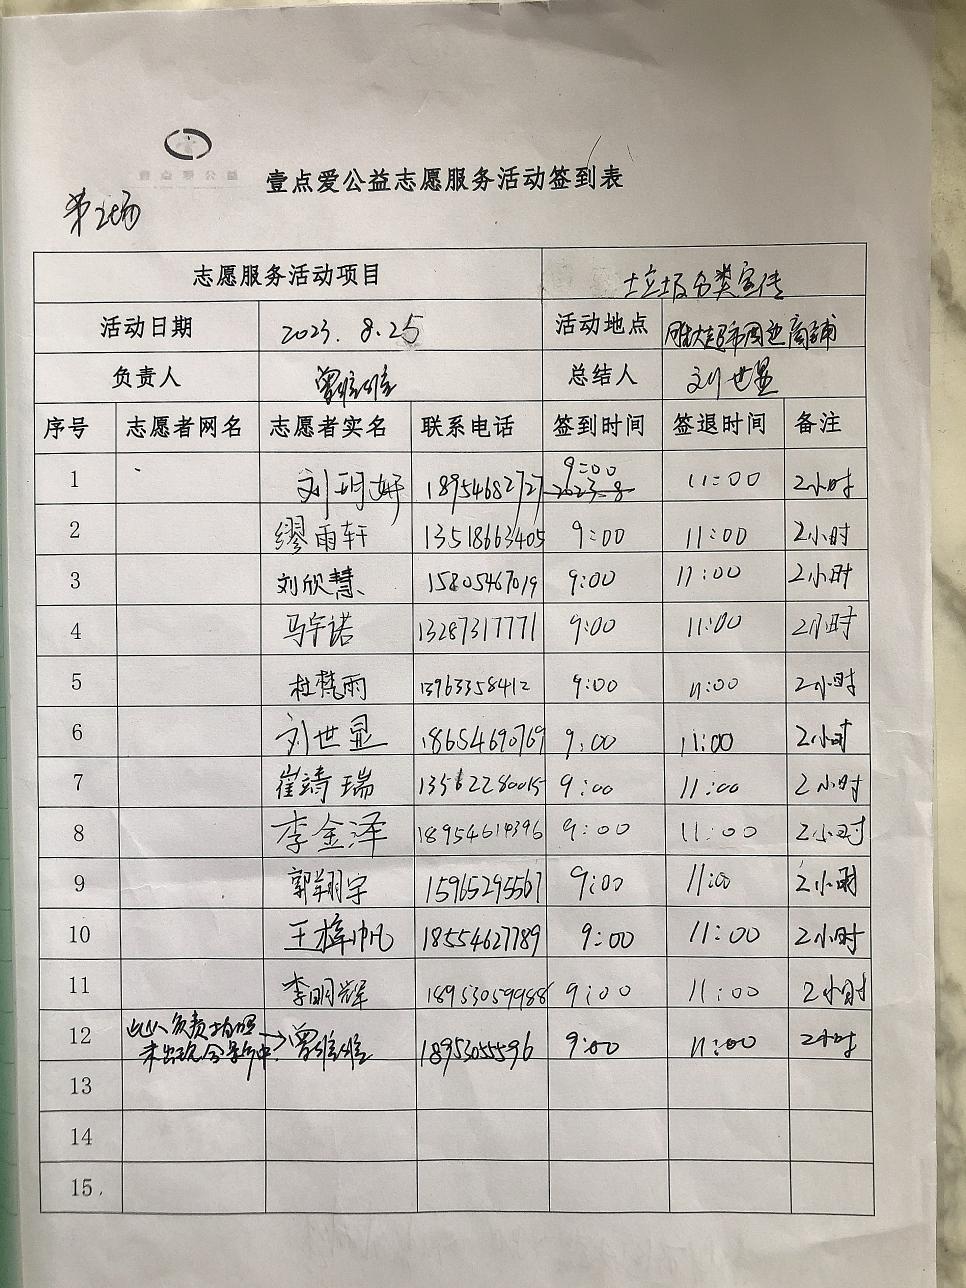 壹点爱公益
壹点爱公益志愿服务活动签到表
第2场
志愿服务活动项目 垃圾分类宣传
活动日期 2023. 8.25 活动地点 胜大超市周边商铺
负责人 曾维维 总结人 刘世显
序号 志愿者网名 志愿者实名 联系电话 签到时间 签退时间 备注
1 刘玥妍 18954682727 9:00 2023.8 11:00 2小时
2 缪雨轩 13518663405 9:00 11:00 2小时
3 刘欣慧 15805467019 9:00 11:00 2小时
4 马宇诺 13287317771 9:00 11:00 2小时
5 杜梵雨 13963358412 9:00 11:00 2小时
6 刘世显 18654690769 9:00 11:00 2小时
7 崔靖瑞 13562280015 9:00 11:00 2小时
8 李金泽 18954614396 9:00 11:00 2小时
9 郭翔宇 15965295567 9:00 11:00 2小时
10 王梓帆 18554627789 9:00 11:00 2小时
11 李明辉 18953059988 9:00 11:00 2小时
12 此人负责拍照 未出现合影中 曾维维 18953055596 9:00 11:00 2小时
13
14
15